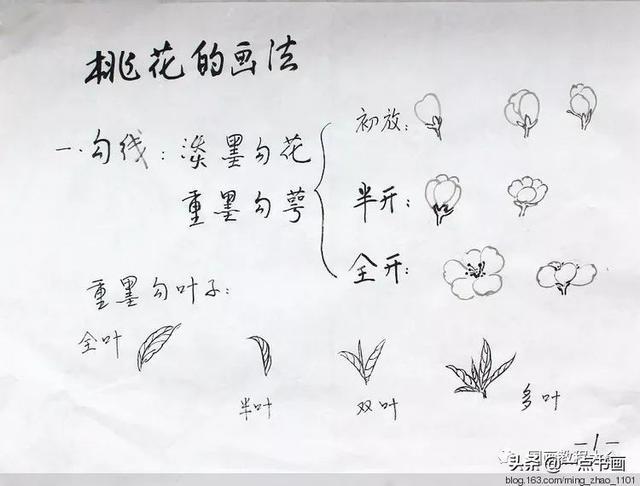 桃花的画法
一.勾线:淡墨勾花
重墨勾萼
初放:
半开:
全开:
重墨勾叶子:
全叶
半叶
双叶
多叶
-1-
头条@一点书画
blog.163.com/ming_zhao_1101